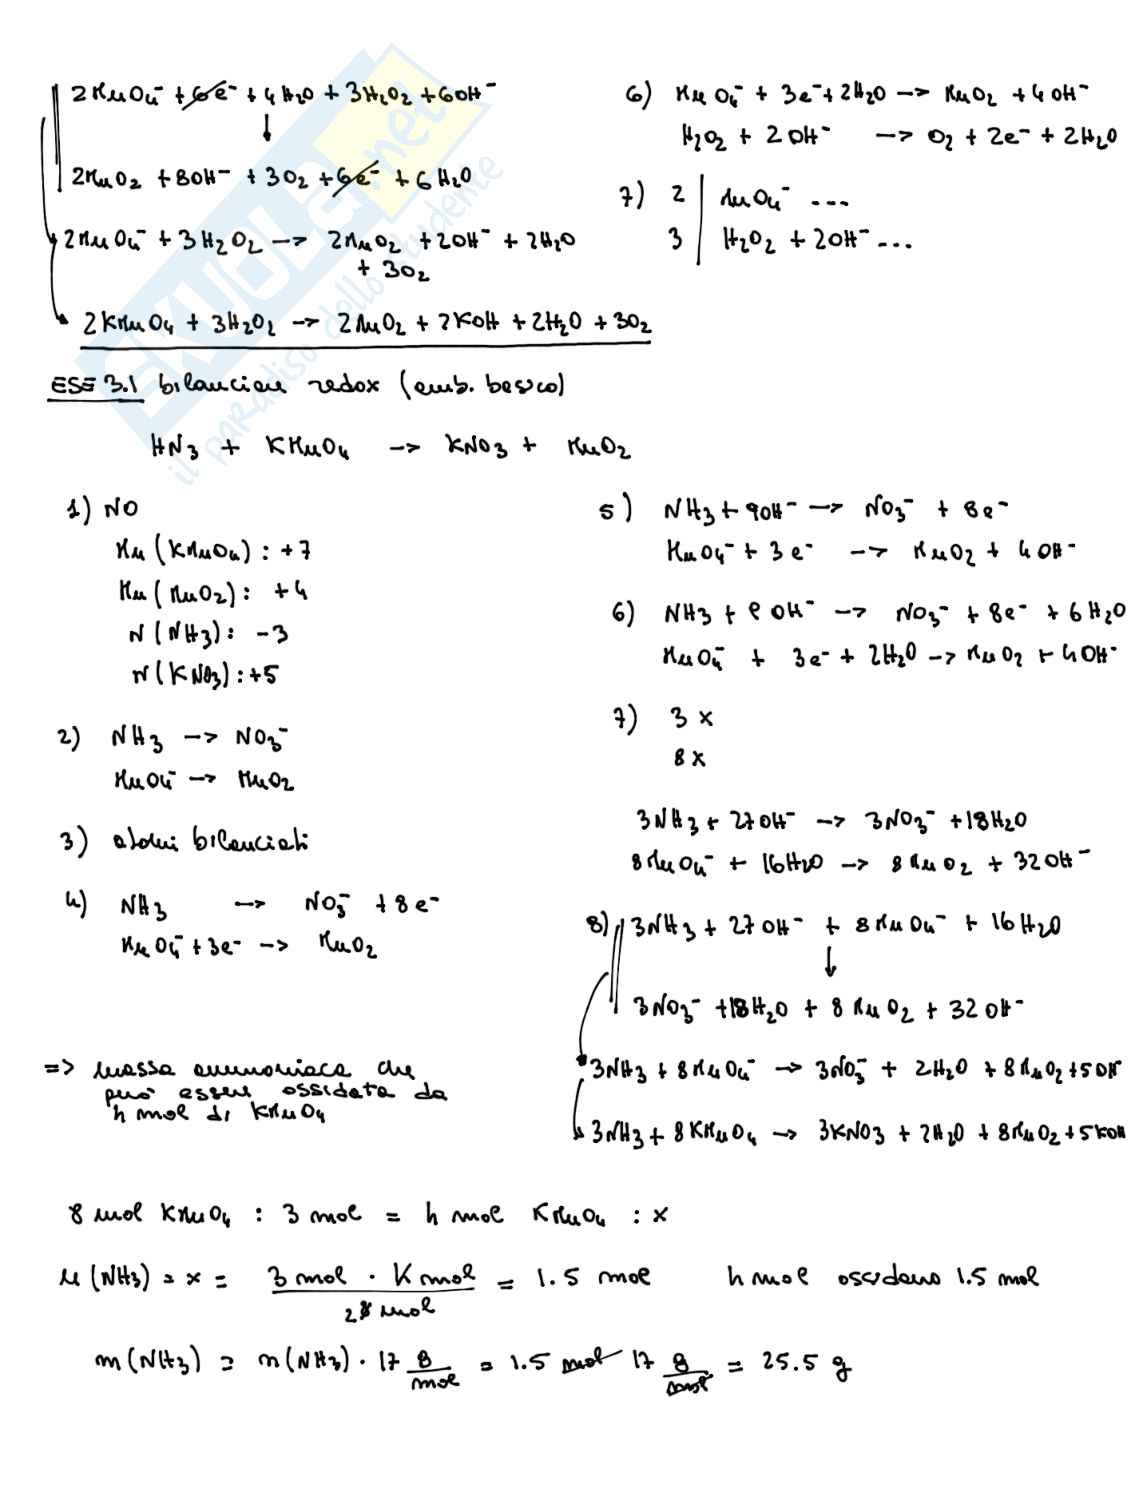 2MnO4⁻ + 6e⁻ + 4H2O + 3H2O2 + 6OH⁻
↓
2MnO2 + 8OH⁻ + 3O2 + 6e⁻ + 6H2O
2MnO4⁻ + 3H2O2 --> 2MnO2 + 2OH⁻ + 2H2O
+ 3O2
2KMnO4 + 3H2O2 --> 2MnO2 + 2KOH + 2H2O + 3O2
6) MnO4⁻ + 3e⁻ + 2H2O --> MnO2 + 4OH⁻
H2O2 + 2OH⁻ --> O2 + 2e⁻ + 2H2O
7) 2 | MnO4⁻ ...
3 | H2O2 + 2OH⁻ ...
SKUOLA.net
il paradiso dello studente
ESE 3.1 bilanciare redox (amb. basico)
HN3 + KMnO4 --> KNO3 + MnO2
1) NO
Mn (KMnO4) : +7
Mn (MnO2) : +4
N (NH3) : -3
N (KNO3) : +5
2) NH3 --> NO3⁻
MnO4⁻ --> MnO2
3) atomi bilanciati
4) NH3 --> NO3⁻ + 8e⁻
MnO4⁻ + 3e⁻ --> MnO2
5) NH3 + 9OH⁻ --> NO3⁻ + 8e⁻
MnO4⁻ + 3e⁻ --> MnO2 + 4OH⁻
6) NH3 + 9OH⁻ --> NO3⁻ + 8e⁻ + 6H2O
MnO4⁻ + 3e⁻ + 2H2O --> MnO2 + 4OH⁻
7) 3 x
8 x
3NH3 + 27OH⁻ --> 3NO3⁻ + 18H2O
8MnO4⁻ + 16H2O --> 8MnO2 + 32OH⁻
8) 3NH3 + 27OH⁻ + 8MnO4⁻ + 16H2O
↓
3NO3⁻ + 18H2O + 8MnO2 + 32OH⁻
3NH3 + 8MnO4⁻ --> 3NO3⁻ + 2H2O + 8MnO2 + 5OH⁻
3NH3 + 8KMnO4 --> 3KNO3 + 2H2O + 8MnO2 + 5KOH
=> massa ammoniaca che
può essere ossidata da
4 mol di KMnO4
8 mol KMnO4 : 3 mol = 4 mol KMnO4 : x
n (NH3) = x = 3 mol · 4 mol / 28 mol = 1.5 mol 4 mol ossidano 1.5 mol
m (NH3) = n (NH3) · 17 g/mol = 1.5 mol 17 g/mol = 25.5 g